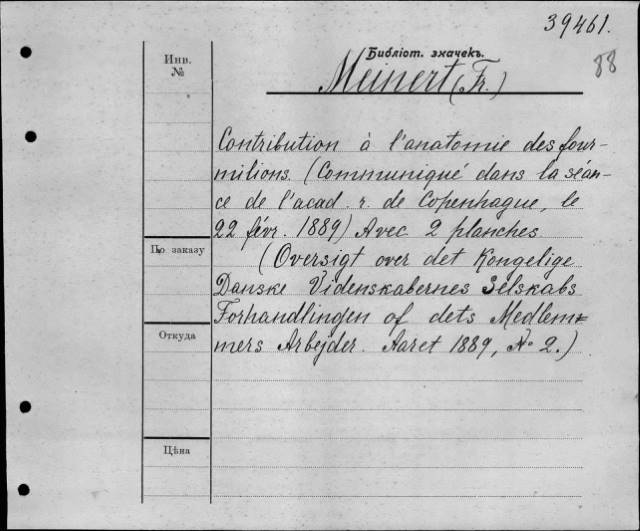 39461.
88
Библіот. значекъ.
Инв.
№
Meinert (Fr.)
Contribution à l'anatomie des four-
milions. (Communiqué dans la séan-
ce de l'acad. r. de Copenhague, le
22 févr. 1889) Avec 2 planches
По заказу
(Oversigt over det Kongelige
Danske Videnskabernes Selskabs
Forhandlingen of dets Medlem-
Откуда
mers Arbejder. Aaret 1889, № 2.)
Цѣна